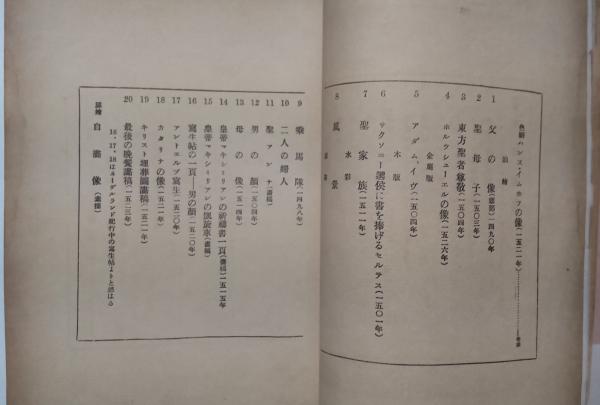 色刷 ハンス・イムホフの像(一五二一年)
油繪
1 父の像(部分)一四九〇年
2 聖母子(一五〇三年)
3 東方聖者尊敬(一五〇四年)
4 ホルツシューエルの像(一五二六年)
金屬版
5 アダム、イヴ(一五〇四年)
木版
6 サクソニー選侯に書を捧げるセルテス(一五〇一年)
7 聖家族(一五一一年)
水彩
8 風景
9 乘馬隊(一四九八年)
10 二人の婦人
11 聖アンナ(畫稿)
12 男の顏(一五〇四年)
13 母の像(一五一四年)
14 皇帝マキシミリアンの祈禱書一頁(畫稿)一五一五年
15 皇帝マキシミリアンの凱旋車(畫稿)
16 寫生帖の一頁—男の顏(一五二〇年)
17 アントエルプ寫生(一五二〇年)
18 カタリナの像(一五二一年)
19 キリスト埋葬圖畫稿(一五二一年)
20 最後の晩餐畫稿(一五二三年)
16、17、18はネーデルランド旅行中の寫生帖よりと思はる
扉繪 自畫像(素描)